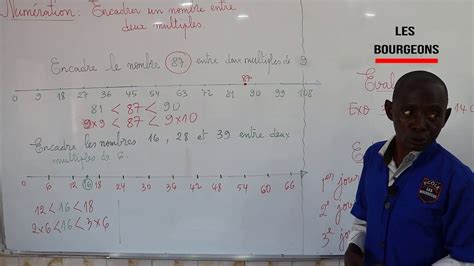 Numération: Encadrer un nombre entre
deux multiples.
LES
BOURGEONS
Encadre le nombre 87 entre deux multiples de 9
87
0 9 18 27 36 45 54 63 72 81 90 99 108
81 < 87 < 90
9x9 < 87 < 9x10
Eval
Exo
14
Encadre les nombres 16, 28 et 39 entre deux
multiples de 6.
0 6 12 16 18 24 30 36 42 48 54 60 66
12 < 16 < 18
2x6 < 16 < 3x6
1er jour
2e jou
3e jou
ECOLE
LES
BOURGEONS